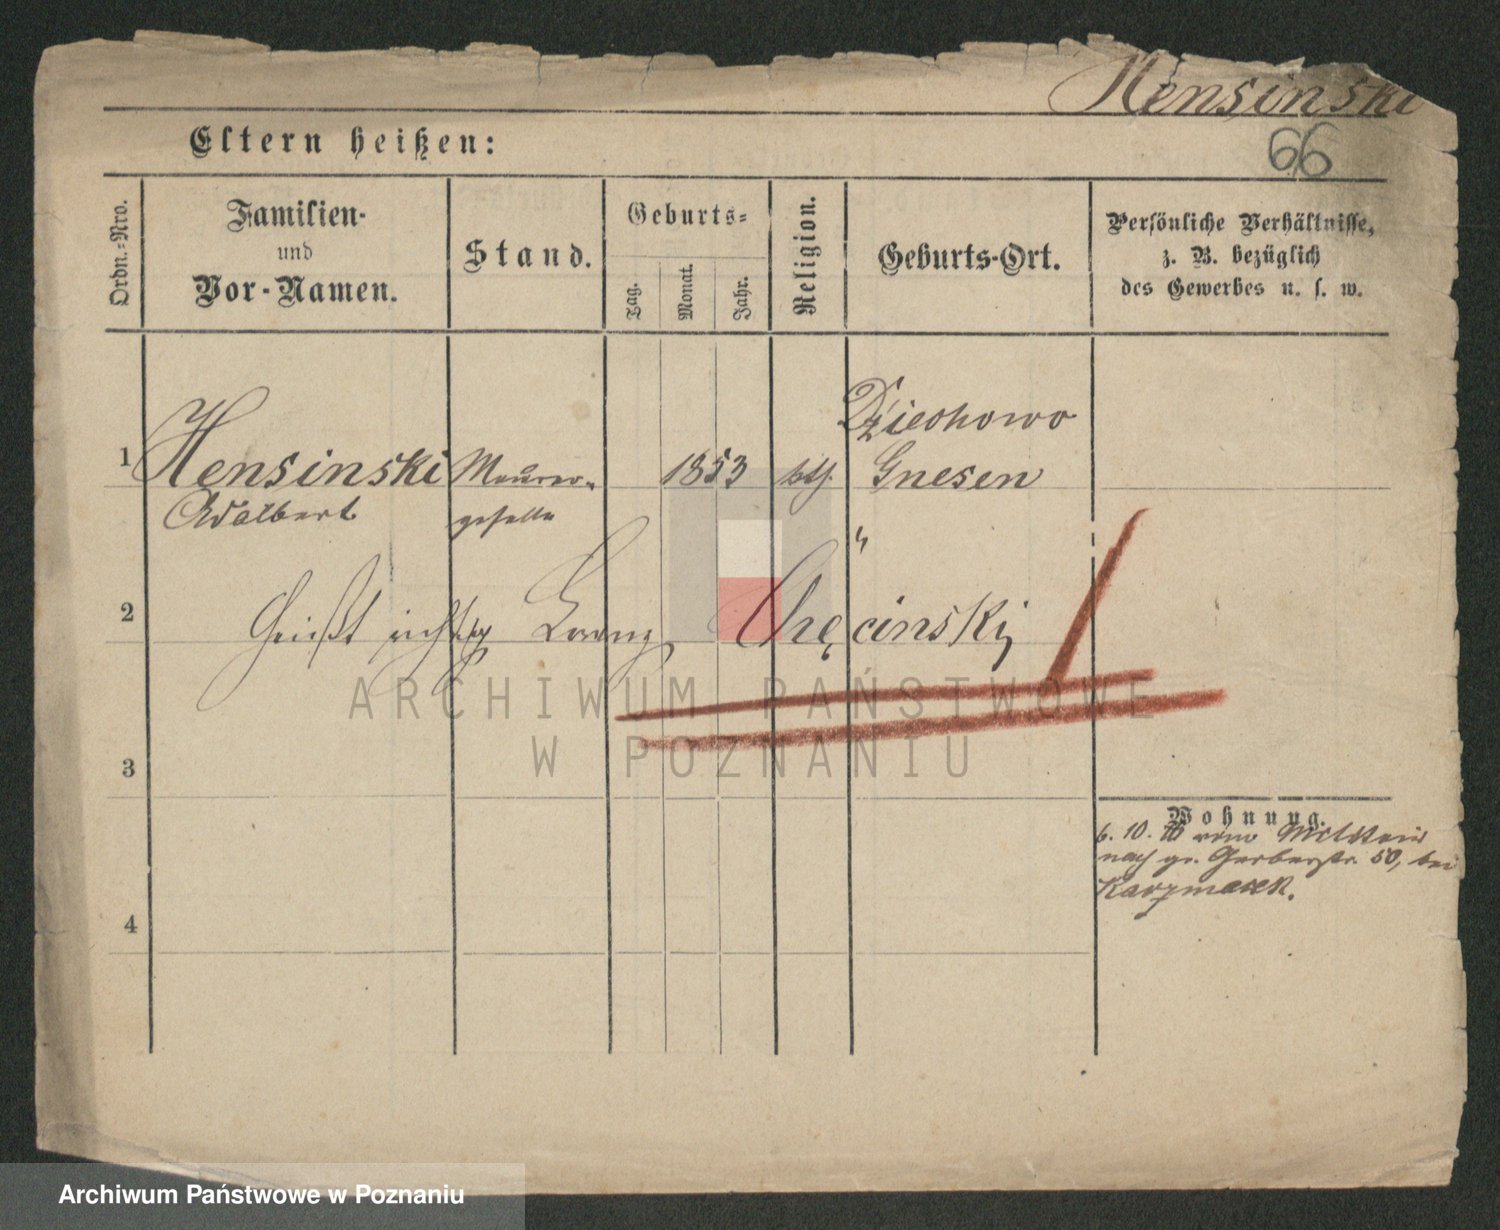 Hensinski
66
Eltern heißen:
Ordn.-Nro.
Familien-
und
Vor-Namen.
Stand.
Geburts-
Tag.
Monat.
Jahr.
Religion.
Geburts-Ort.
Persönliche Verhältnisse,
z. B. bezüglich
des Gewerbes u. s. w.
Dziechowo
1 Hensinski Maurer- 1853 kth. Gnesen
Adalbert geselle "
2 heißt richtig Lorenz Chęcinski
ARCHIWUM PAŃSTWOWE
W POZNANIU
3
Wohnung.
6. 10. vom
nach gr. Gerberstr. 50, bei
Karzmarek.
4
Archiwum Państwowe w Poznaniu